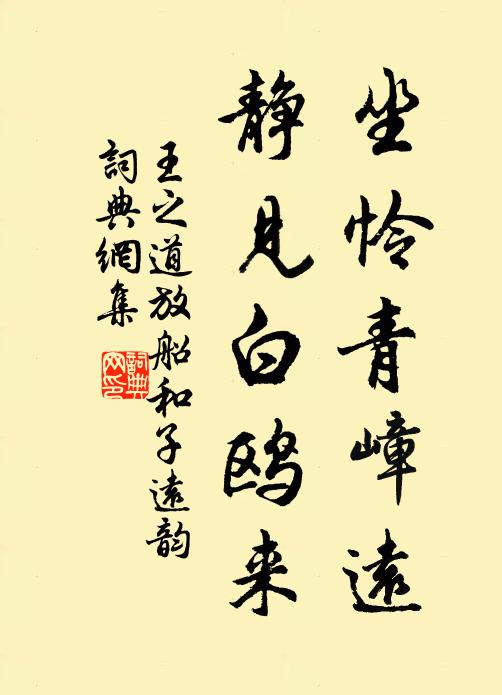 坐怜青嶂遠
静見白鸥来
王之道放船和子遠韵
詞典網集
詞典网印